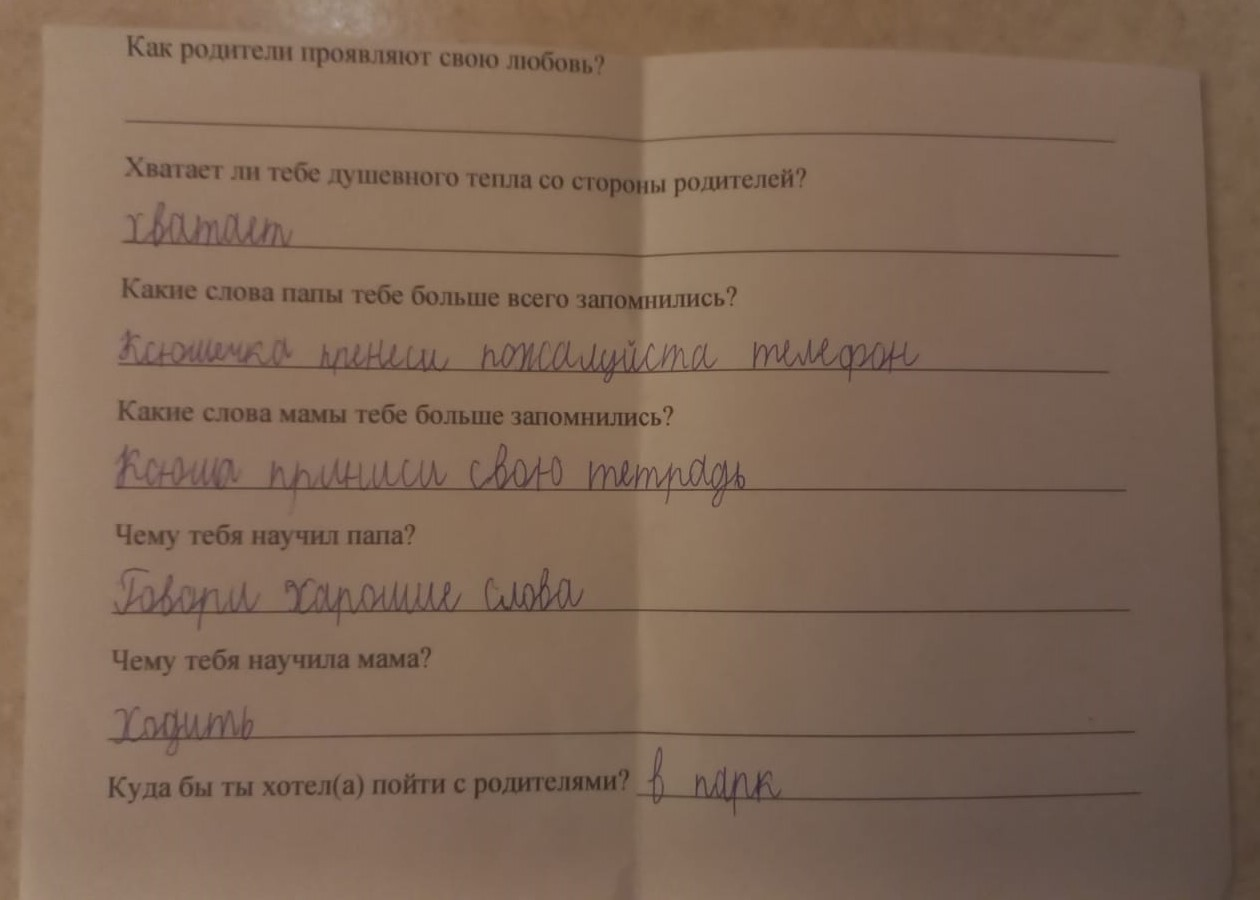 Как родители проявляют свою любовь?
Хватает ли тебе душевного тепла со стороны родителей?
хватает
Какие слова папы тебе больше всего запомнились?
Ксюшечка пренеси пожалуйста телефон
Какие слова мамы тебе больше запомнились?
Ксюша приниси свою тетрадь
Чему тебя научил папа?
Говори харошие слова
Чему тебя научила мама?
Ходить
Куда бы ты хотел(а) пойти с родителями? в парк